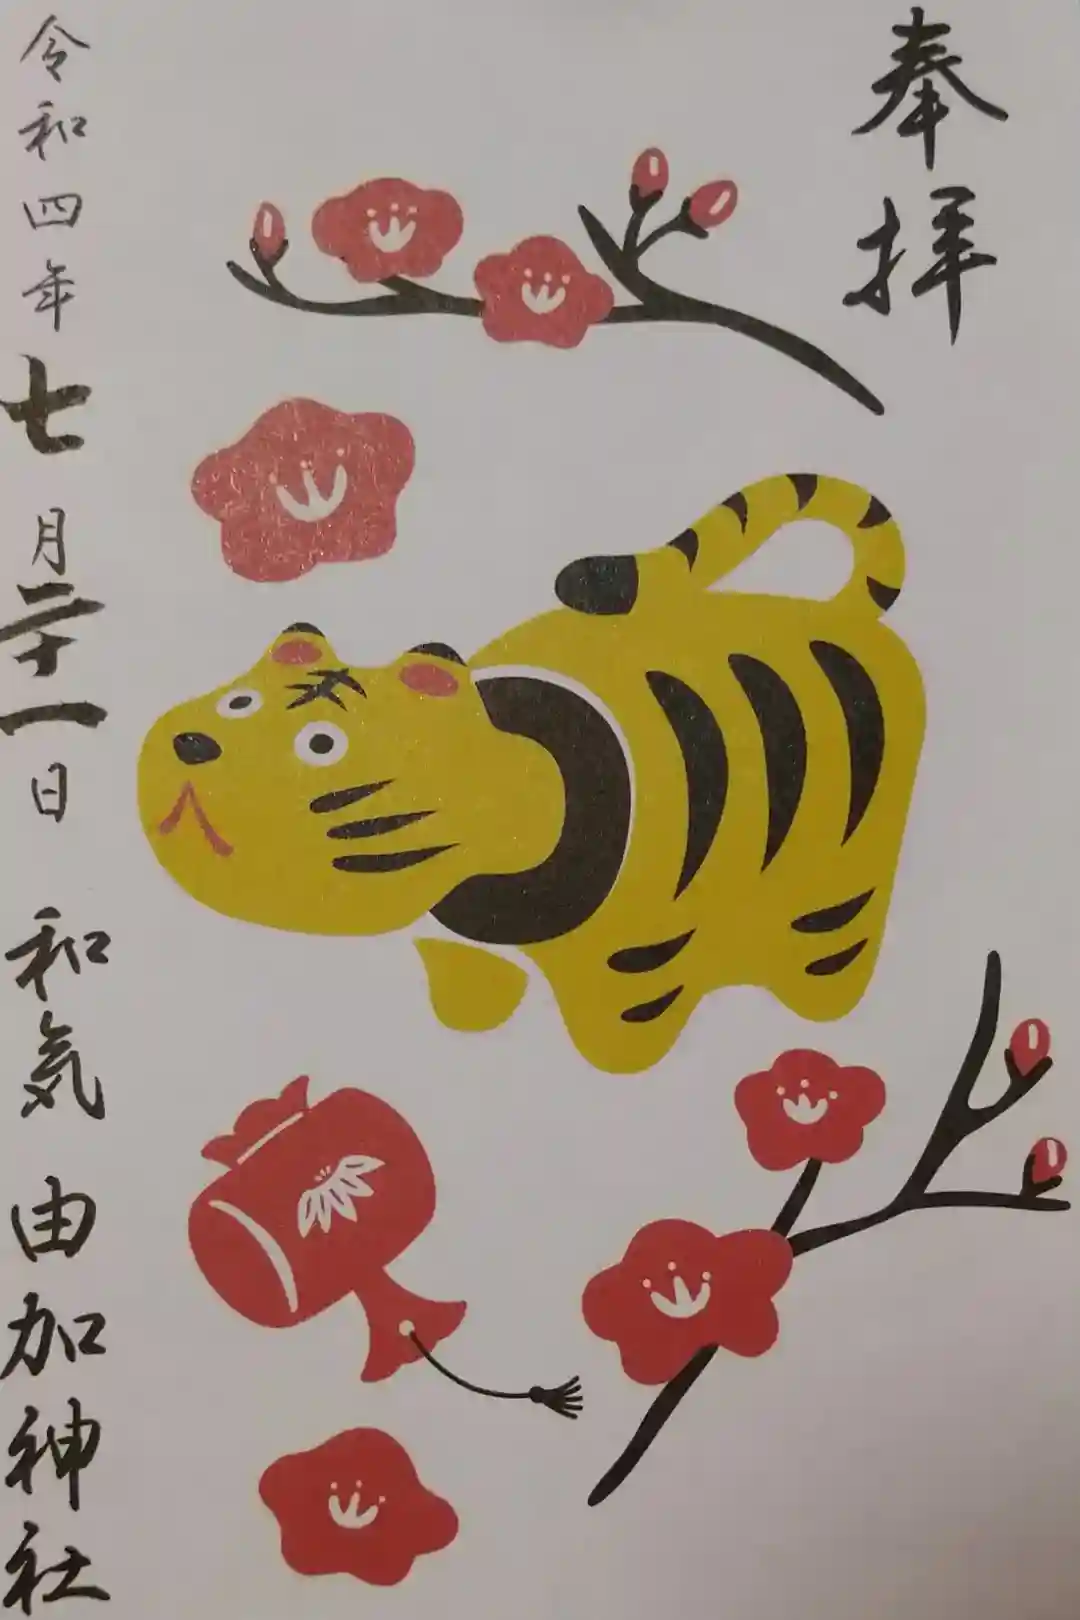 奉拝
令和四年七月二十一日 和気 由加神社